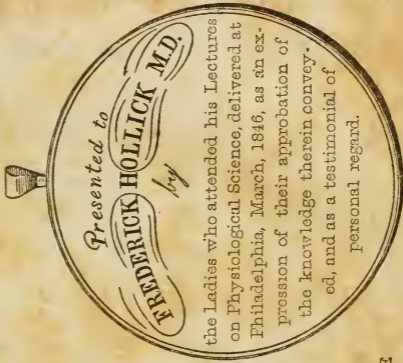 Presented to
FREDERICK HOLLICK M.D.
by
the Ladies who attended his Lectures
on Physiological Science, delivered at
Philadelphia, March, 1846, as an ex-
pression of their approbation of
the knowledge therein convey-
ed, and as a testimonial of
personal regard.